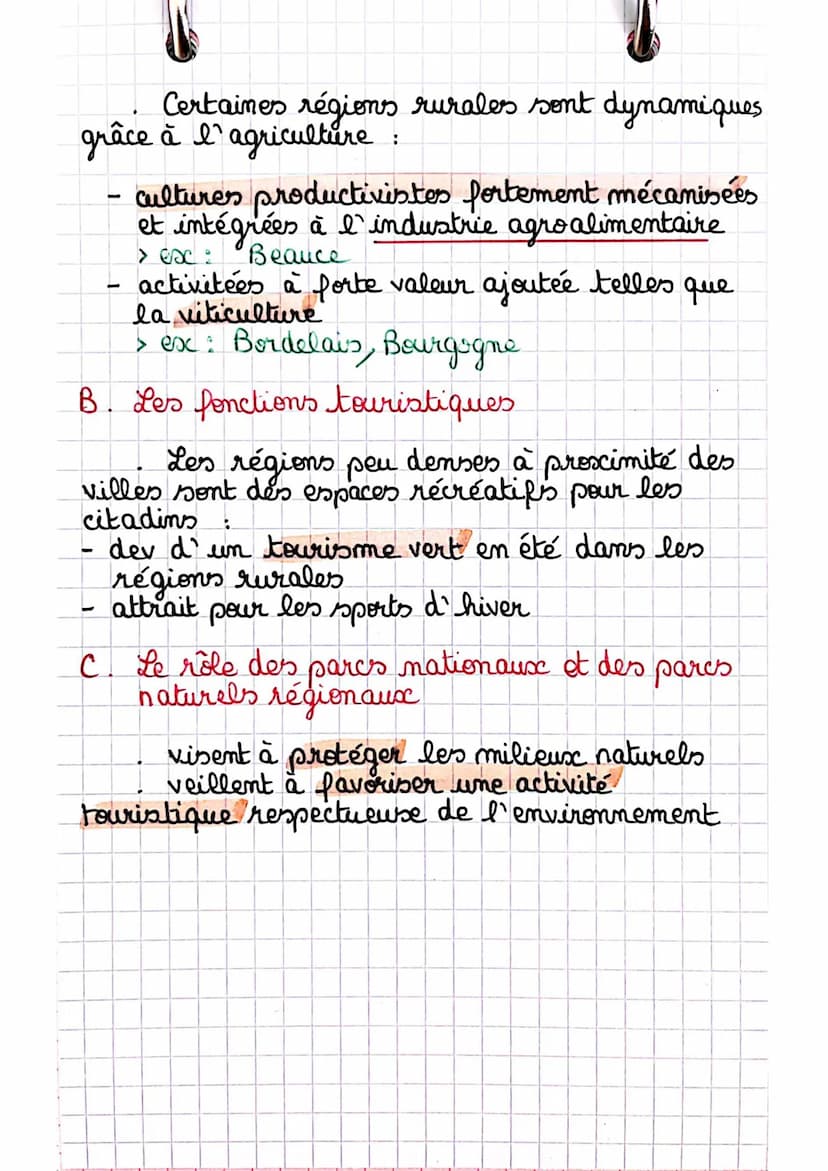 . Certaines régions rurales sont dynamiques
grâce à l'agriculture :
- cultures productivistes fortement mécanisées
et intégrées à l'industrie agroalimentaire
> ex : Beauce
- activitées à forte valeur ajoutée telles que
la viticulture
> ex : Bordelais, Bourgogne
B. Les fonctions touristiques
. Les régions peu denses à proximité des
villes sont des espaces récréatifs pour les
citadins :
- dev d'un tourisme vert en été dans les
régions rurales
- attrait pour les sports d'hiver
C. Le rôle des parcs nationaux et des parcs
naturels régionaux
. visent à protéger les milieux naturels
. veillent à favoriser une activité
touristique respectueuse de l'environnement